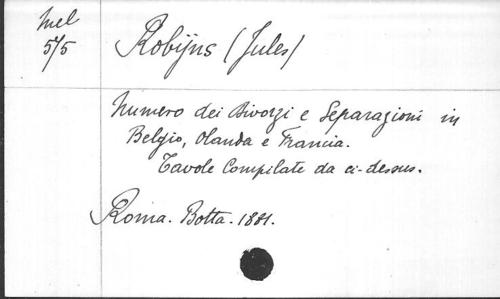 Mel
5/5
Robijns (Jules)
Numero dei Divorzi e Separazioni in
Belgio, Olanda e Francia.
Tavole Compilate da ci-dessus.
Roma. Botta. 1881.